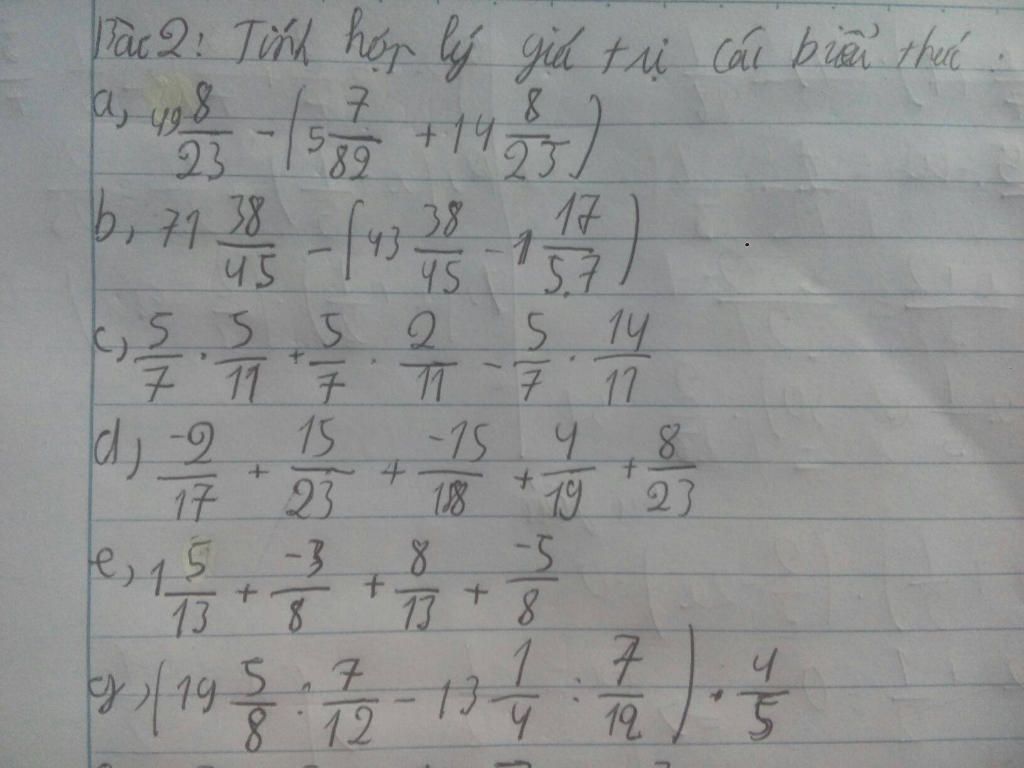 Bài 2: Tính hợp lý giá trị các biểu thức.
a, 49 8/23 - (5 7/82 + 14 8/23)
b, 71 38/45 - (43 38/45 - 1 17/57)
c, 5/7 . 5/11 + 5/7 . 2/11 - 5/7 . 14/11
d, -2/17 + 15/23 + -15/18 + 4/19 + 8/23
e, 1 5/13 + -3/8 + 8/13 + -5/8
g, (19 5/8 : 7/12 - 13 1/4 : 7/12) . 4/5